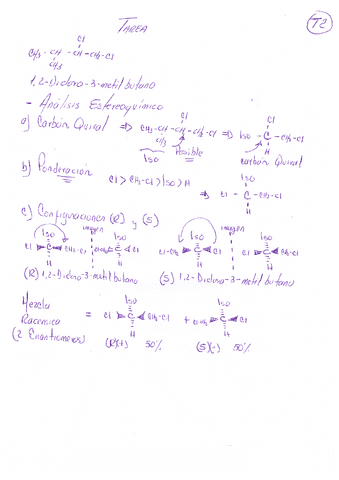 TAREA
T2
Cl
CH3-CH-CH-CH2-Cl
CH3
1,2-Dicloro-3-metil butano
- Análisis Estereoquímico
a) Carbón Quiral ⇒ CH3-CH-CH-CH2-Cl ⇒ Iso-C-CH2-Cl
Cl
Cl
CH3
H
Iso
Posible
Carbón Quiral
b) Ponderación Cl > CH2-Cl > Iso > H
Iso
⇒ Cl-C-CH2-Cl
H
c) Configuraciones (R) y (S)
imagen
imagen
Iso Iso Iso Iso
Cl C CH2-Cl C Cl Cl-CH2 C Cl Cl C CH2-Cl
H H H H
(R) 1,2-Dicloro-3-metil butano (S) 1,2-Dicloro-3-metil butano
Mezcla
Racemica
(2 Enantiomeros)
Iso Iso
= Cl C CH2-Cl + C Cl
H H
(R)(+) 50% (S)(-) 50%